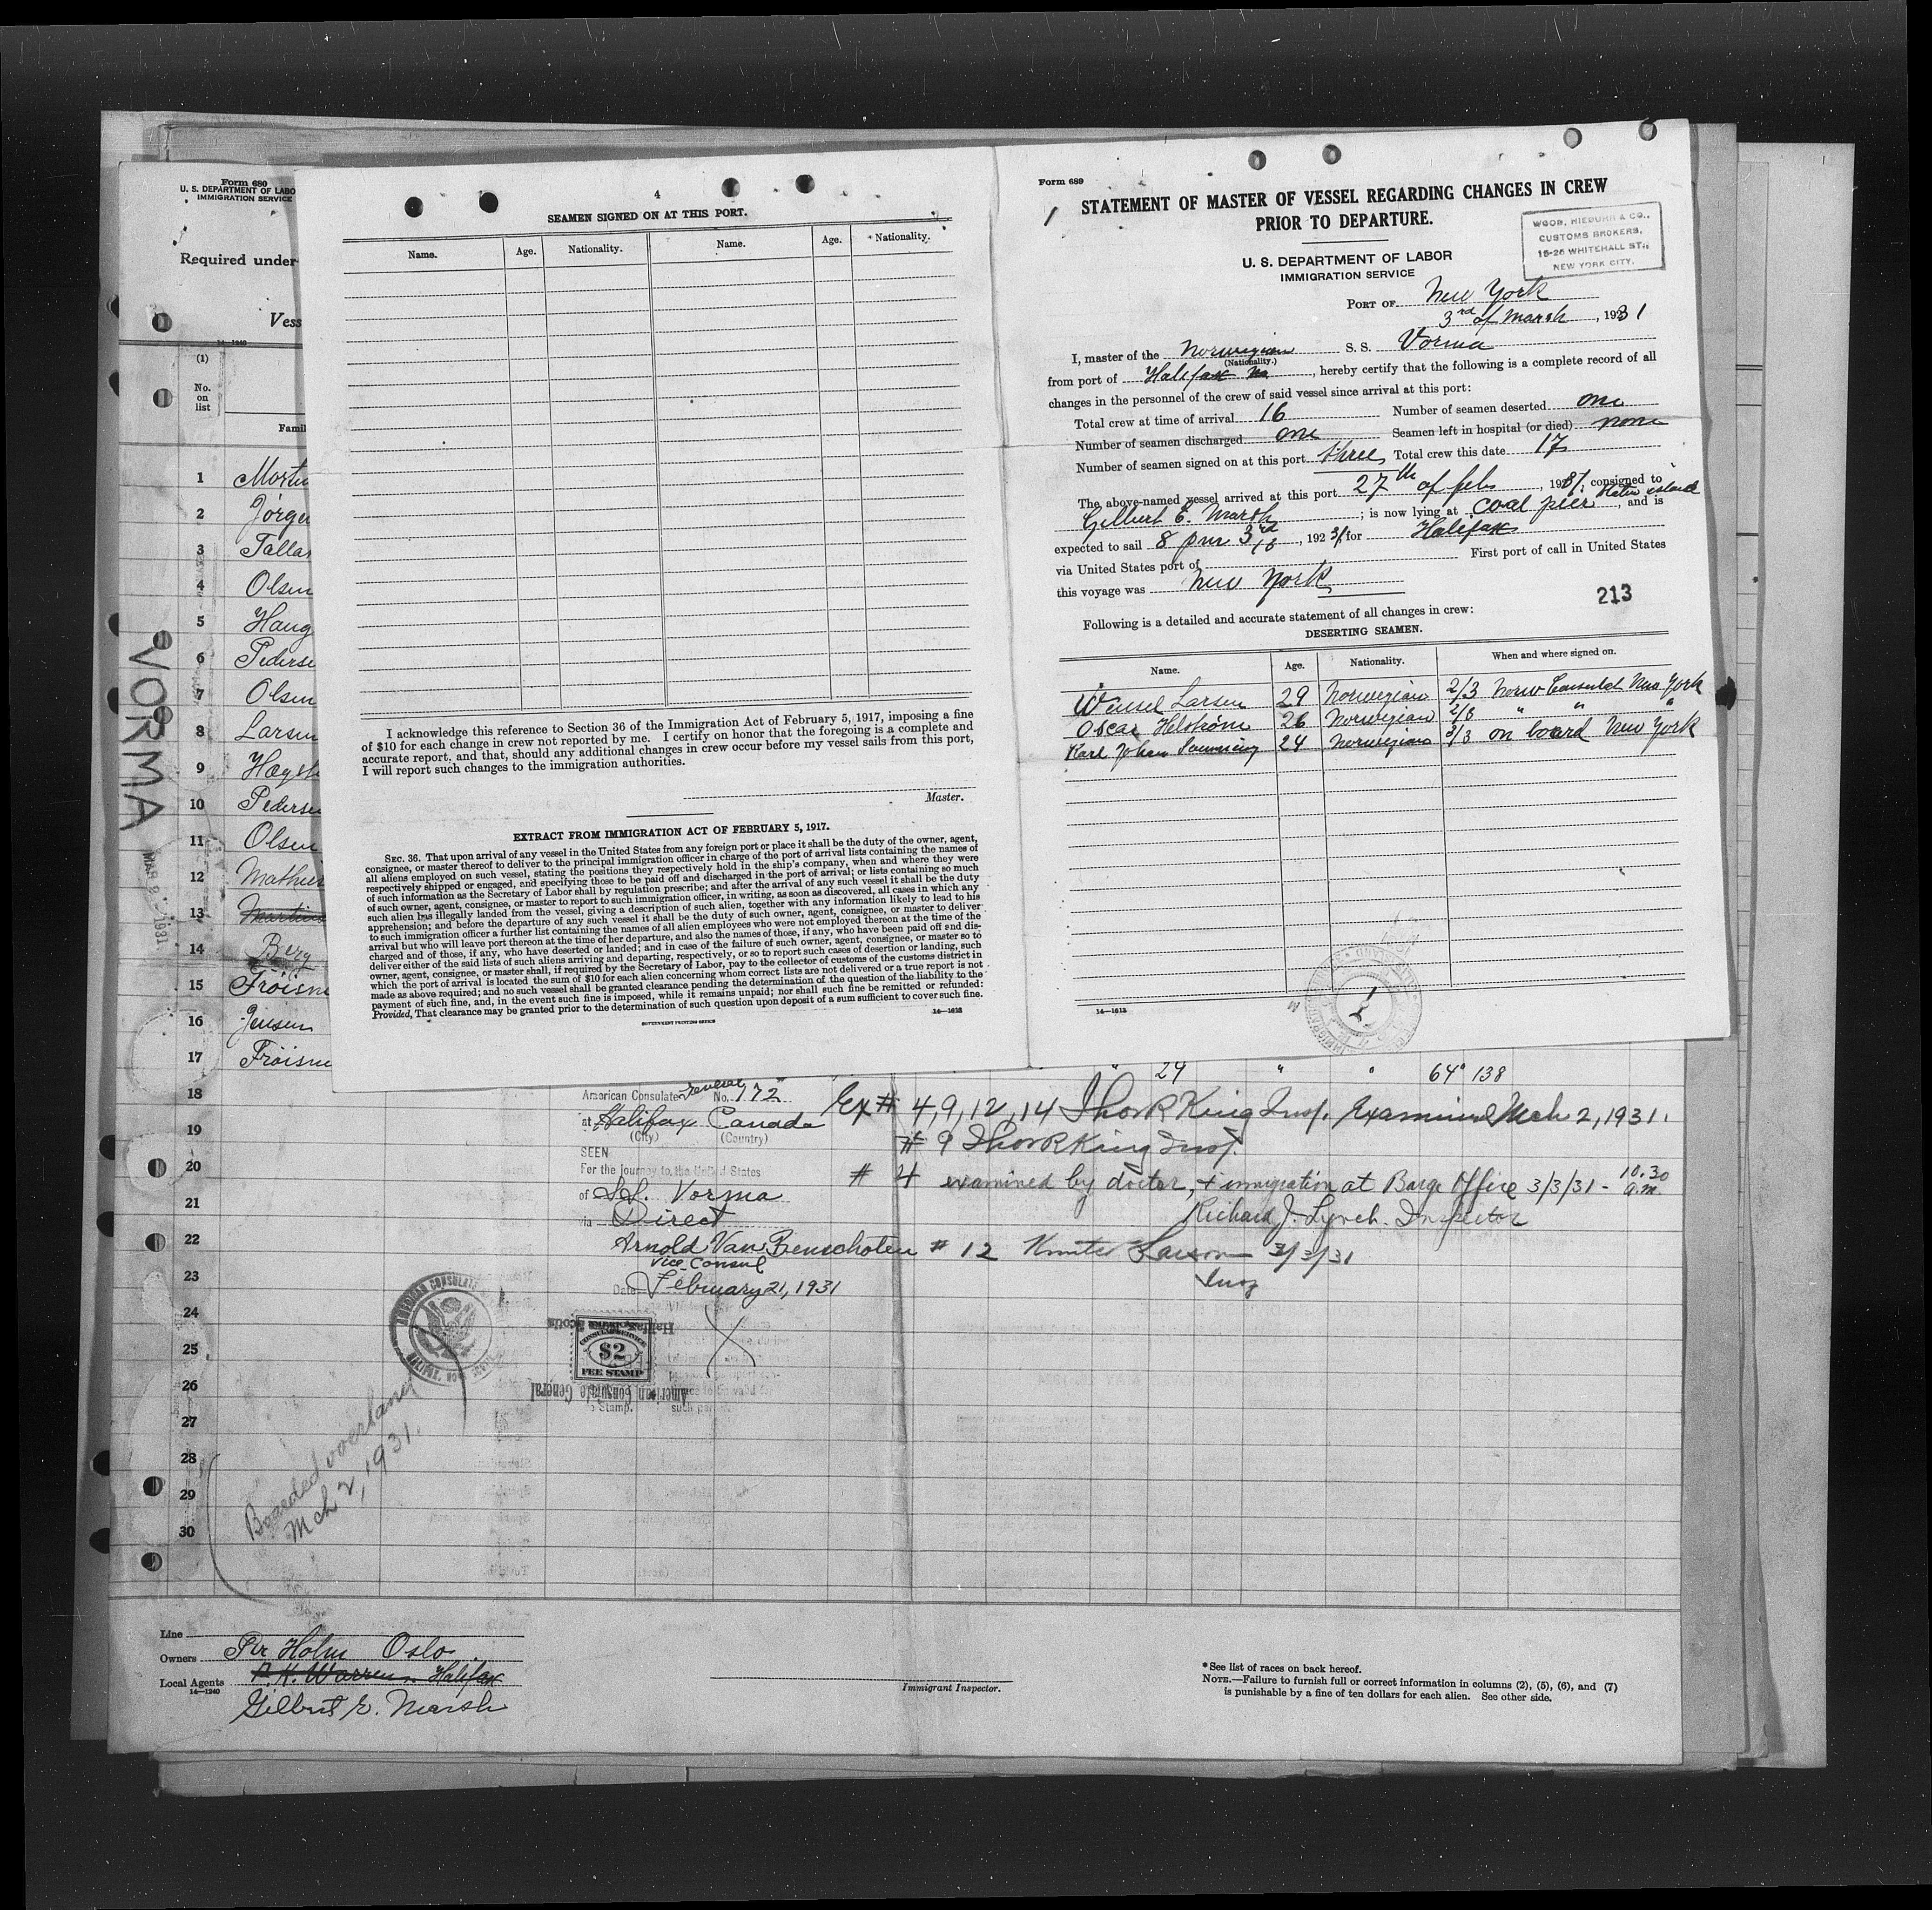 Form 680
U. S. DEPARTMENT OF LABO
IMMIGRATION SERVICE
Required under
Vess
14—1240
(1)
No.
on
list
Famil
1 Morten
2 Jörge
3 Talla
4 Olsen
5 Haug
6 Pederse
7 Olsen
8 Larsen
9 Høgst
10 Pederse
11 Olsen
12 Mathis
13 Martin
14 Berg
15 Fröisn
16 Jensen
17 Fröisn
18
19
20
21
22
23
24
25
26
27
28
29
30
VORMA
MAR 2 - 1931
4
SEAMEN SIGNED ON AT THIS PORT.
Name. Age. Nationality. Name. Age. Nationality.
I acknowledge this reference to Section 36 of the Immigration Act of February 5, 1917, imposing a fine
of $10 for each change in crew not reported by me. I certify on honor that the foregoing is a complete and
accurate report, and that, should any additional changes in crew occur before my vessel sails from this port,
I will report such changes to the immigration authorities.
Master.
EXTRACT FROM IMMIGRATION ACT OF FEBRUARY 5, 1917.
SEC. 36. That upon arrival of any vessel in the United States from any foreign port or place it shall be the duty of the owner, agent,
consignee, or master thereof to deliver to the principal immigration officer in charge of the port of arrival lists containing the names of
all aliens employed on such vessel, stating the positions they respectively hold in the ship's company, when and where they were
respectively shipped or engaged, and specifying those to be paid off and discharged in the port of arrival; or lists containing so much
of such information as the Secretary of Labor shall by regulation prescribe; and after the arrival of any such vessel it shall be the duty
of such owner, agent, consignee, or master to report to such immigration officer, in writing, as soon as discovered, all cases in which any
such alien has illegally landed from the vessel, giving a description of such alien, together with any information likely to lead to his
apprehension; and before the departure of any such vessel it shall be the duty of such owner, agent, consignee, or master to deliver
to such immigration officer a further list containing the names of all alien employees who were not employed thereon at the time of the
arrival but who will leave port thereon at the time of her departure, and also the names of those, if any, who have been paid off and dis-
charged and of those, if any, who have deserted or landed; and in case of the failure of such owner, agent, consignee, or master so to
deliver either of the said lists of such aliens arriving and departing, respectively, or so to report such cases of desertion or landing, such
owner, agent, consignee, or master shall, if required by the Secretary of Labor, pay to the collector of customs of the customs district in
which the port of arrival is located the sum of $10 for each alien concerning whom correct lists are not delivered or a true report is not
made as above required; and no such vessel shall be granted clearance pending the determination of the question of the liability to the
payment of such fine, and, in the event such fine is imposed, while it remains unpaid; nor shall such fine be remitted or refunded:
Provided, That clearance may be granted prior to the determination of such question upon deposit of a sum sufficient to cover such fine.
GOVERNMENT PRINTING OFFICE
14—1613
Form 689
STATEMENT OF MASTER OF VESSEL REGARDING CHANGES IN CREW
PRIOR TO DEPARTURE.
U. S. DEPARTMENT OF LABOR
IMMIGRATION SERVICE
CUSTOMS BROKERS,
WHITEHALL ST.,
NEW YORK CITY.
PORT OF New York
3rd of March, 1931
I, master of the Norwegian S. S. Vorma
(Nationality.)
from port of Halifax, hereby certify that the following is a complete record of all
changes in the personnel of the crew of said vessel since arrival at this port:
Total crew at time of arrival 16 Number of seamen deserted one
Number of seamen discharged one Seamen left in hospital (or died) none
Number of seamen signed on at this port three Total crew this date 17
The above-named vessel arrived at this port 27th of feb, 1931, consigned to
Gilbert E. Marsh; is now lying at coal pier Staten island, and is
expected to sail 8 pm 3rd, 1931 for Halifax
via United States port of First port of call in United States
this voyage was New York
213
Following is a detailed and accurate statement of all changes in crew:
DESERTING SEAMEN.
Name. Age. Nationality. When and where signed on.
Larsen 29 Norwegian 2/3 Norw Consulat New York
Oscar Helström 26 Norwegian 2/3 " " "
Karl Johan 24 Norwegian 3/3 on board New York
14—1613
24 " 64" 138
American Consulate General No. 172
at Halifax Canada
(City) (Country)
SEEN
For the journey to the United States
of S.S. Vorma
via Direct
Arnold Van Benschoten
Vice Consul
Date February 21, 1931
Ex # 4, 9, 12, 14 Thor R King Insp. Examined Mch 2, 1931.
# 9 Thor R King Insp.
# 4 examined by doctor, + immigration at Barge Office 3/3/31 - 10.30 a.m
Richard J. Lynch. Inspector
# 12 Larson 3/3/31
Insp
AMERICAN CONSULATE
CONSULAR SERVICE
$2
FEE STAMP
American Consulate General
Boarded
Mch 2, 1931.
Line
Owners Per Holm Oslo
Local Agents Warren Halifax
14—1240
Gilbert E. Marsh
Immigrant Inspector.
* See list of races on back hereof.
NOTE.—Failure to furnish full or correct information in columns (2), (5), (6), and (7)
is punishable by a fine of ten dollars for each alien. See other side.